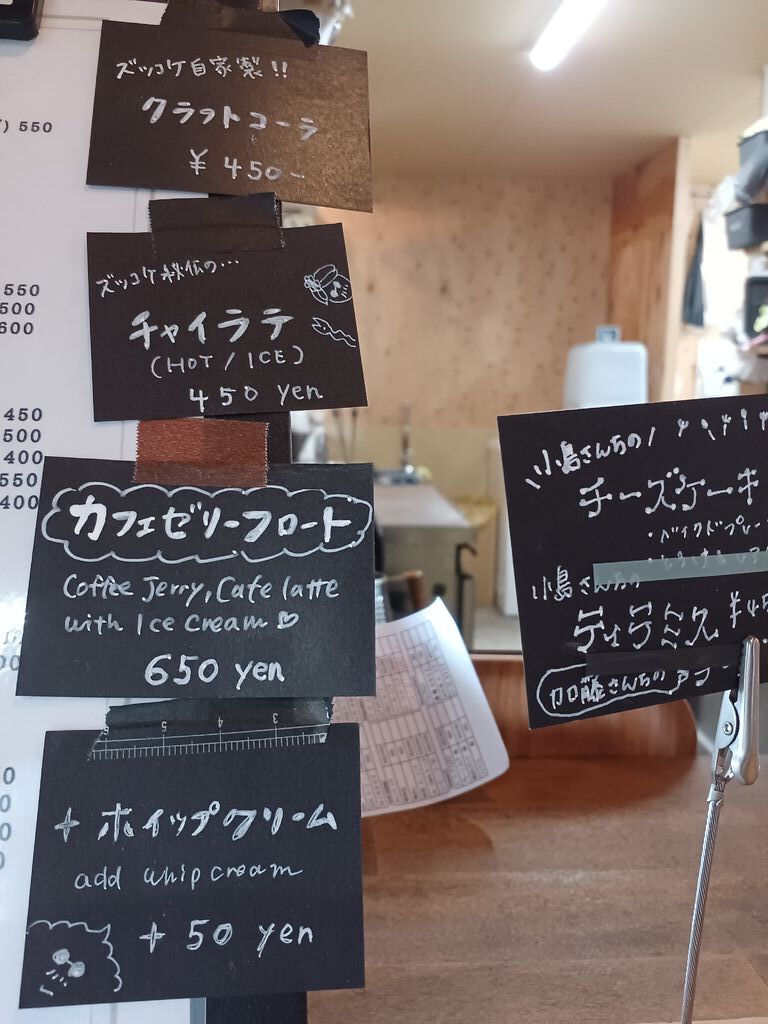 ) 550
550
500
600
450
500
400
550
400
ズッコケ自家製!!
クラフトコーラ
¥450-
ズッコケ秘伝の…
チャイラテ
(HOT / ICE)
450 yen
カフェゼリーフロート
Coffee Jerry, Cafe latte
with Ice Cream ♡
650 yen
5 4 3
+ ホイップクリーム
add whip cream
+ 50 yen
小島さんちの
チーズケーキ
・ベイクドプレー
小島さんちの
ティラミス ¥45
加藤さんちの